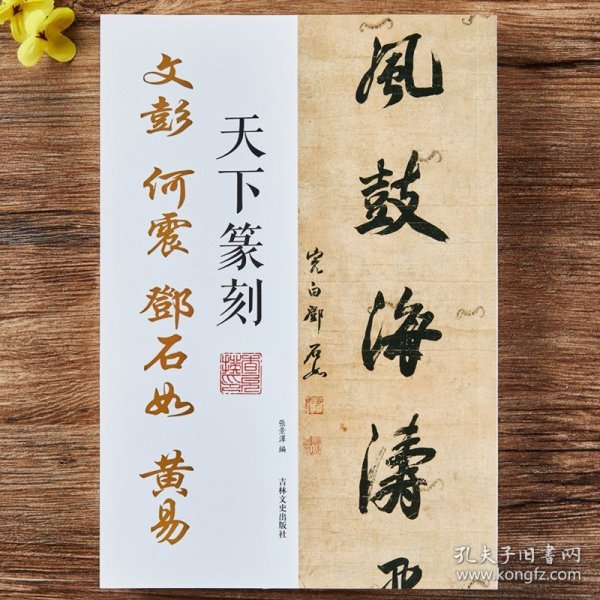 風鼓海濤
完白鄧石如
天下篆刻
張景澤 編
吉林文史出版社
文彭 何震 鄧石如 黄易
孔夫子旧書网
www.kongfz.com